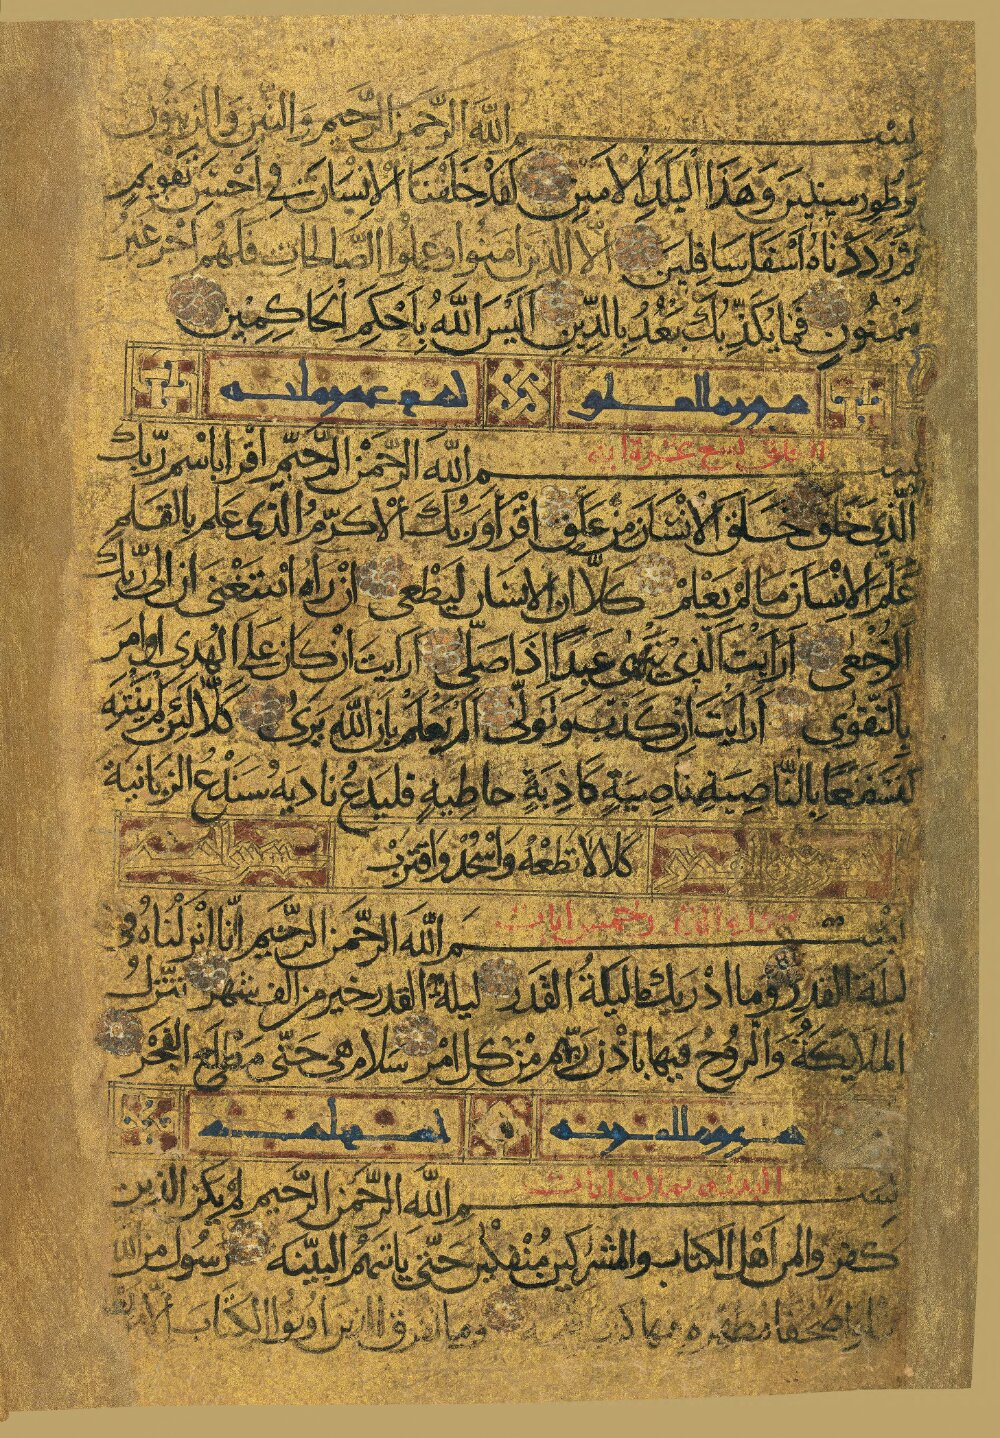 بسم الله الرحمن الرحيم والتين والزيتون
وطور سينين وهذا البلد الامين لقد خلقنا الانسان في احسن تقويم
ثم رددناه اسفل سافلين الا الذين امنوا وعملوا الصالحات فلهم اجر غير
ممنون فما يكذبك بعد بالدين اليس الله باحكم الحاكمين
سورة العلق تسع عشرة اية
العلق تسع عشرة اية
بسم الله الرحمن الرحيم اقرا باسم ربك
الذي خلق خلق الانسان من علق اقرا وربك الاكرم الذي علم بالقلم
علم الانسان ما لم يعلم كلا ان الانسان ليطغى ان راه استغنى ان الى ربك
الرجعى ارايت الذي ينهى عبدا اذا صلى ارايت ان كان على الهدى او امر
بالتقوى ارايت ان كذب وتولى الم يعلم بان الله يرى كلا لئن لم ينته
لنسفعا بالناصية ناصية كاذبة خاطية فليدع ناديه سندع الزبانية
كلا لا تطعه واسجد واقترب
وخمس ايات
بسم الله الرحمن الرحيم انا انزلناه في
ليلة القدر وما ادريك ما ليلة القدر ليلة القدر خير من الف شهر تنزل
الملايكة والروح فيها باذن ربهم من كل امر سلام هي حتى مطلع الفجر
ثمان ايات
بسم الله الرحمن الرحيم لم يكن الذين
كفروا من اهل الكتاب والمشركين منفكين حتى ياتيهم البينة رسول من الله
صحفا مطهرة فيها كتب وما تفرق الذين اوتوا الكتاب الا من